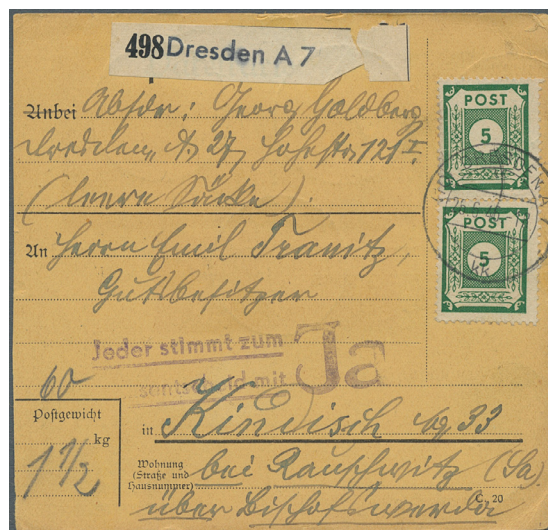 498 Dresden A 7
POST
5
Anbei Absdr: Georg Goldberg
Dresden, A 27, Hohestr. 121 I.
(leere Säcke).
POST
5
An Herrn Emil Tranitz,
Gutsbesitzer
Jeder stimmt zum
mit Ja
60
Postgewicht
kg
1 1/2
in Kindisch bg 33
Wohnung
(Straße und
Hausnummer)
bei Rauschwitz (Sa)
über Bischofswerda
C. 20